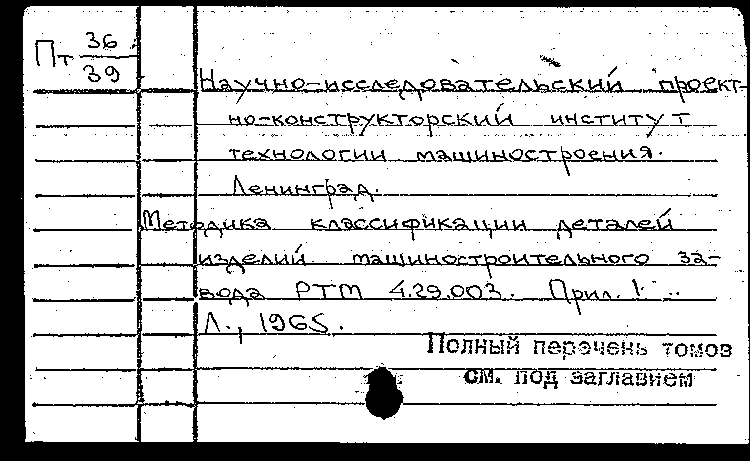 Пт 36/39
Научно-исследовательский проект-
но-конструкторский институт
технологии машиностроения.
Ленинград.
Методика классификации деталей
изделий машиностроительного за-
вода РТМ 4.29.003. Прил. 1.
Л., 1965.
Полный перечень томов
см. под заглавием